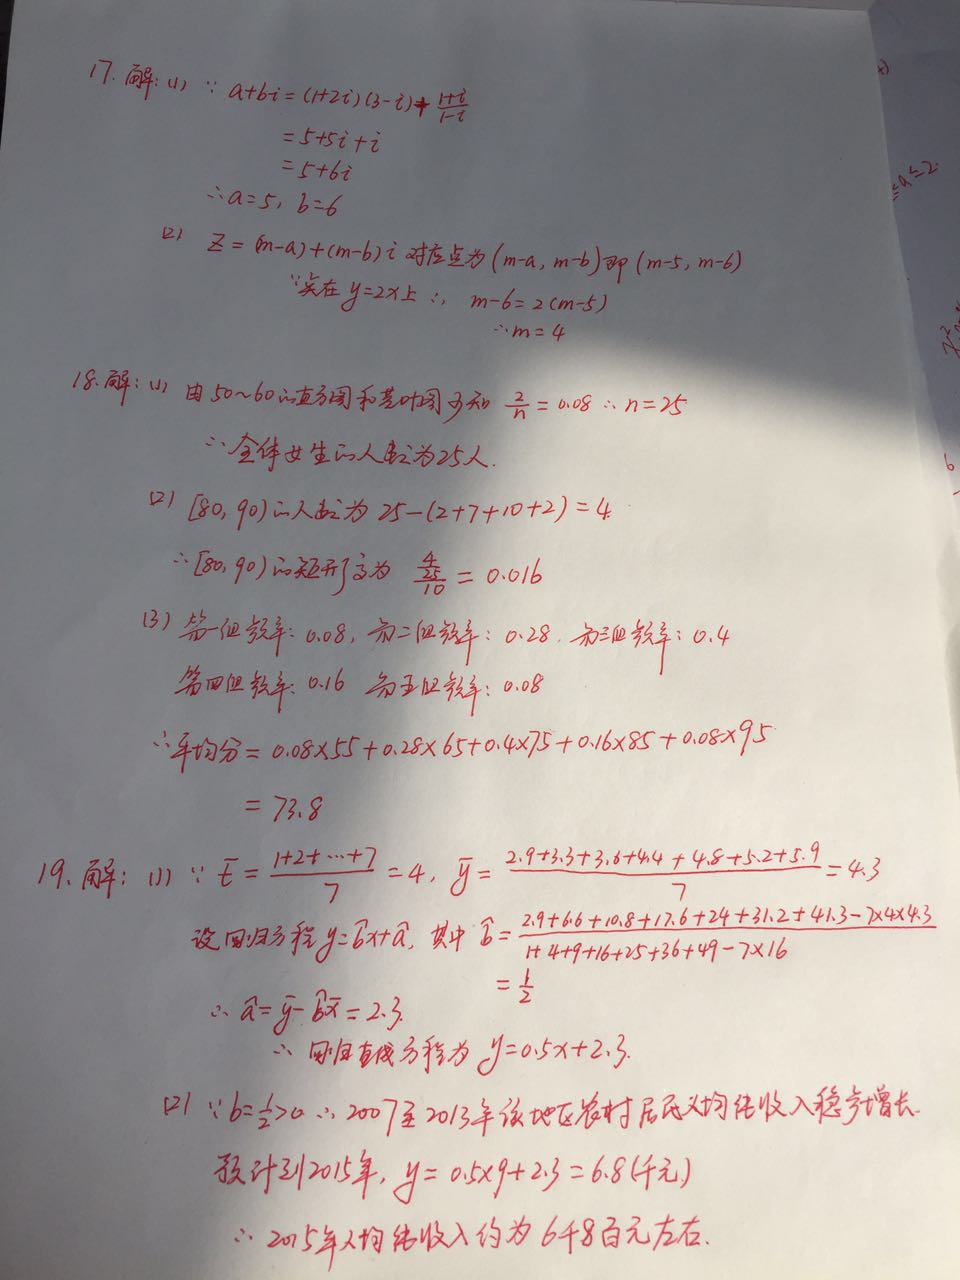 17. 解: (1) ∵ a+bi = (1+2i)(3-i)+ \frac{1+i}{1-i}
= 5+5i+i
= 5+6i
∴ a=5, b=6
(2) Z = (m-a)+(m-b)i 对应点为 (m-a, m-b) 即 (m-5, m-6)
∵ 点在 y=2x上 ∴ m-6=2(m-5)
∴ m=4
18. 解: (1) 由50~60的直方图和茎叶图可知 \frac{2}{n} = 0.08 ∴ n=25
∴ 全体女生的人数为25人.
(2) [80, 90)的人数为 25-(2+7+10+2)=4
∴ [80, 90)的矩形高为 \frac{\frac{4}{25}}{10} = 0.016
(3) 第一组频率: 0.08, 第二组频率: 0.28. 第三组频率: 0.4
第四组频率: 0.16 第五组频率: 0.08
∴ 平均分 = 0.08×55+0.28×65+0.4×75+0.16×85+0.08×95
= 73.8
19. 解: (1) ∵ \bar{t} = \frac{1+2+…+7}{7} = 4, \bar{y} = \frac{2.9+3.3+3.6+4.4+4.8+5.2+5.9}{7} = 4.3
设回归方程 y=\hat{b}x+\hat{a}, 其中 \hat{b} = \frac{2.9+6.6+10.8+17.6+24+31.2+41.3-7×4×4.3}{1+4+9+16+25+36+49-7×16}
= \frac{1}{2}
∴ \hat{a} = \bar{y}-\hat{b}\bar{x} = 2.3.
∴ 回归直线方程为 y=0.5x+2.3.
(2) ∵ b=\frac{1}{2}>0 ∴ 2007至2013年该地区农村居民人均纯收入稳步增长.
预计到2015年, y = 0.5×9+2.3 = 6.8(千元)
∴ 2015年人均纯收入约为6千8百元左右.
≤a≤2.